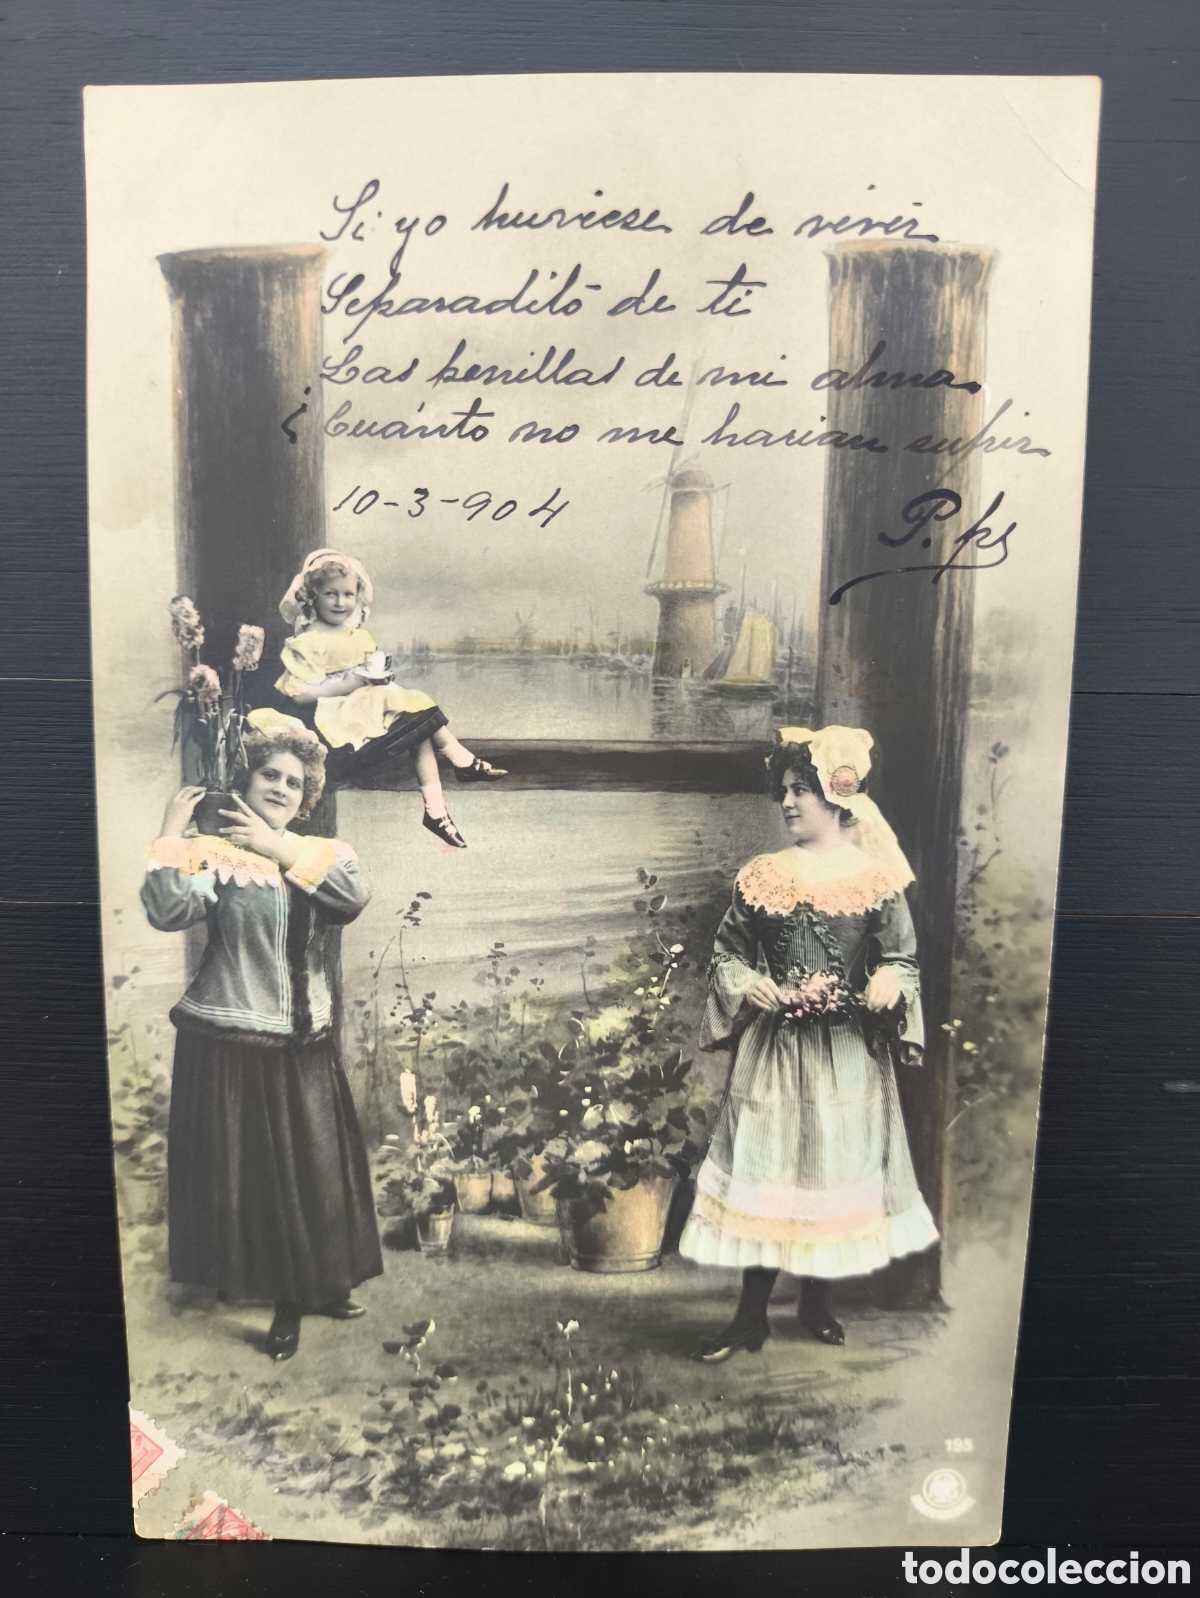 Si yo huviese de vivir
Separadito de ti
Las penillas de mi alma
¡Cuánto no me harian sufrir
10-3-904
P. ps
195
todocoleccion